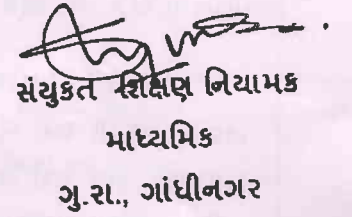 સંયુકત શિક્ષણ નિયામક
માધ્યમિક
ગુ.રા., ગાંધીનગર